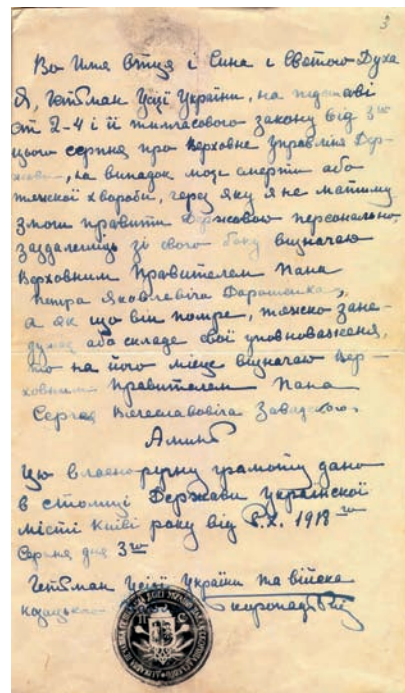 3
Во Имя Отця і Сина і Святого Духа
Я, Гетьман Усієї України, на підставі
ст 2-4 і її тимчасового закону від 3го
цього серпня про Верховне Управління Дер-
жави, на випадок моєї смерти або
тяжкої хвороби, через яку я не матиму
змоги правити Державою персонально,
заздалегідь зі свого боку визначаю
Верховним Правителем Пана
Петра Яковлевіча Дорошенка,
а як що він помре, тяжко зане-
дужає або складе свої уповноваження,
то на його місце визначаю Вер-
ховним Правителем Пана
Сергея Вячеславовіча Завадского.
Аминь
Цю власно-ручну грамоту дано
в столиці Держави Української
місті Київі року від Р.Х. 1918го
Серпня дня 3го
Гетьман Усієї України та війска
козацького Скоропадський